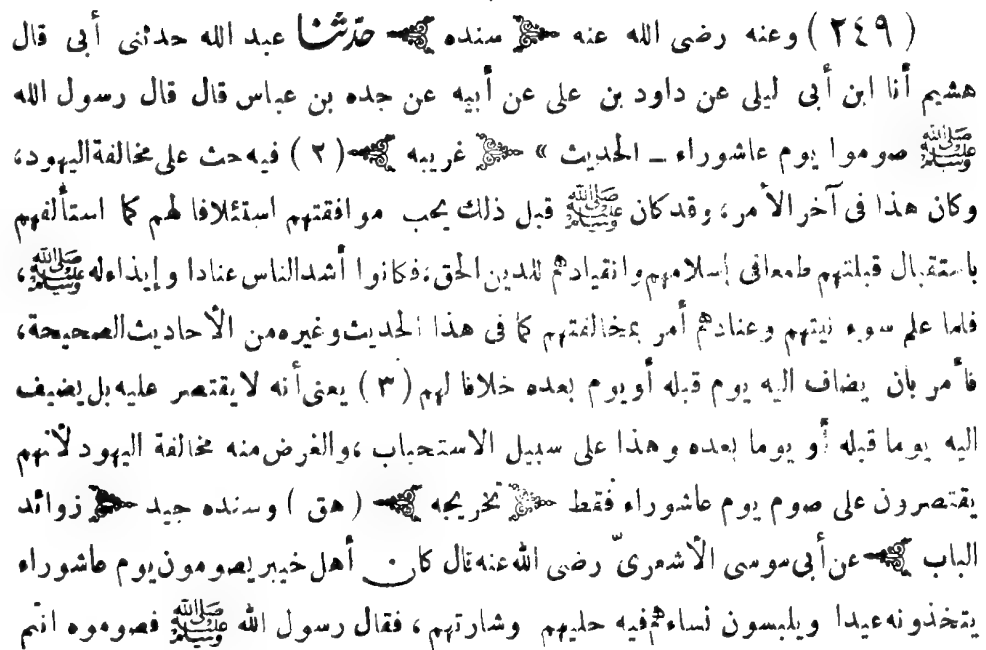 (٢٤٩) وعنه رضى الله عنه سنده حدّثنا عبد الله حدثنى أبى قال
هشيم أنا ابن أبى ليلى عن داود بن على عن أبيه عن جده بن عباس قال قال رسول الله
ﷺ صوموا يوم عاشوراء ــ الحديث » غريبه (٢) فيه حث على مخالفة اليهود،
وكان هذا فى آخر الأمر، وقد كان ﷺ قبل ذلك يحب موافقتهم استئلافا لهم كما استألفهم
باستقبال قبلتهم طمعا فى إسلامهم وانقيادهم للدين الحق، فكانوا أشد الناس عنادا وإيذاء له ﷺ،
فلما علم سوء نيتهم وعنادهم أمر بمخالفتهم كما فى هذا الحديث وغيره من الأحاديث الصحيحة،
فأمر بان يضاف اليه يوم قبله أو يوم بعده خلافا لهم (٣) يعنى أنه لا يقتصر عليه بل يضيف
اليه يوما قبله أو يوما بعده وهذا على سبيل الاستحباب، والغرض منه مخالفة اليهود لأنهم
يقتصرون على صوم يوم عاشوراء فقط تخريجه (هق) وسنده جيد زوائد
الباب عن أبى موسى الأشعرىّ رضى الله عنه قال كان أهل خيبر يصومون يوم عاشوراء
يتخذونه عيدا ويلبسون نساءهم فيه حليهم وشارتهم، فقال رسول الله ﷺ فصوموه انتم